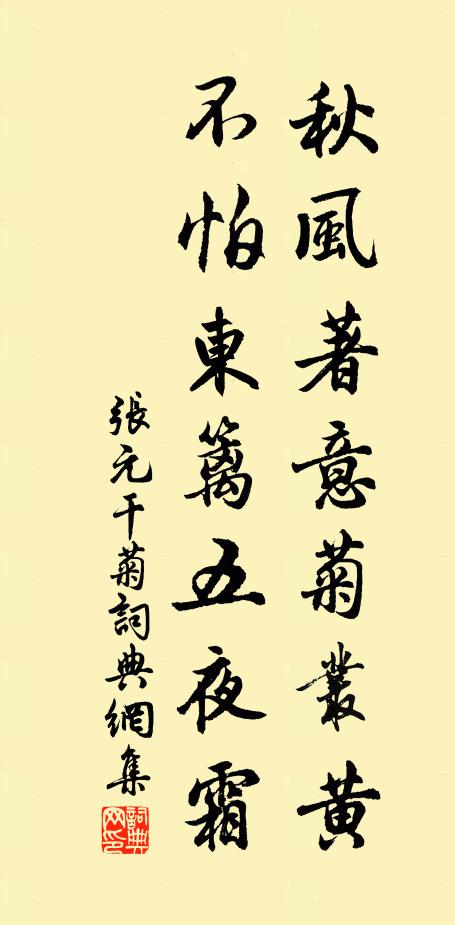 秋風著意菊叢黄
不怕東籬五夜霜
張元干菊詞典網集
詞典網印